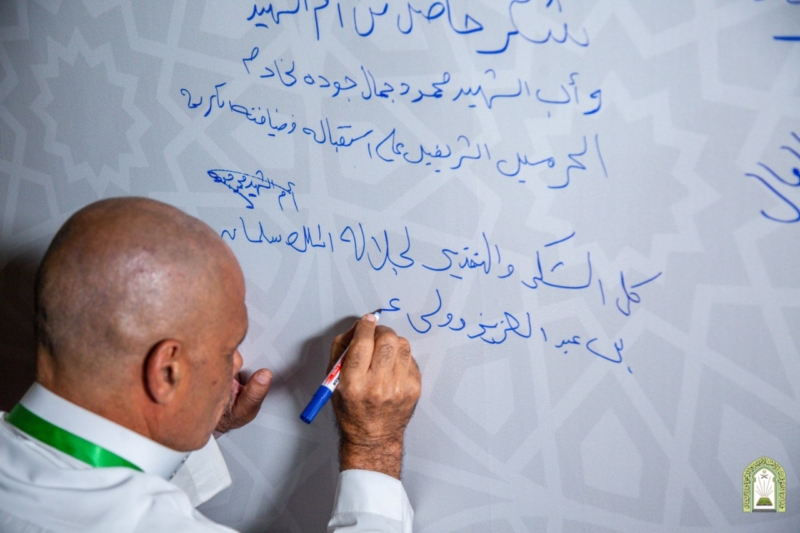 للشكر حاصل من أم الشهيد
وأب الشهيد محمود جمال جوده لخادم
الحرمين الشريفين على استقباله وضيافته الكريمه
أم الشهيد
كل الشكر والتقدير لجلالة الملك سلمان
بن عبد العزيز وولى عـ